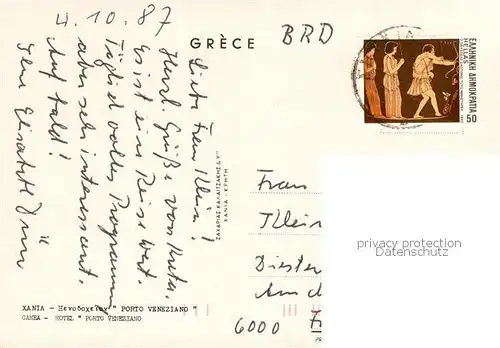 4.10.87
GRÈCE
BRD
ΕΛΛΗΝΙΚΗ ΔΗΜΟΚΡΑΤΙΑ
HELLAS
50
Liebe Frau Klein!
Herzl. Grüße von Kreta.
Es ist eine Reise wert.
Täglich volles Programm
aber sehr interessant.
Auf bald!
Ihre Elisabeth
ΖΑΧΑΡΙΑΣ ΚΑΛΑΪΤΖΑΚΗΣ & Υἱοί
ΧΑΝΙΑ - ΚΡΗΤΗ
Frau
Klein
Diester
An d
6000 F
privacy protection
Datenschutz
ΧΑΝΙΑ - Ξενοδοχεῖον " PORTO VENEZIANO "
CANEA - HOTEL " PORTO VENEZIANO